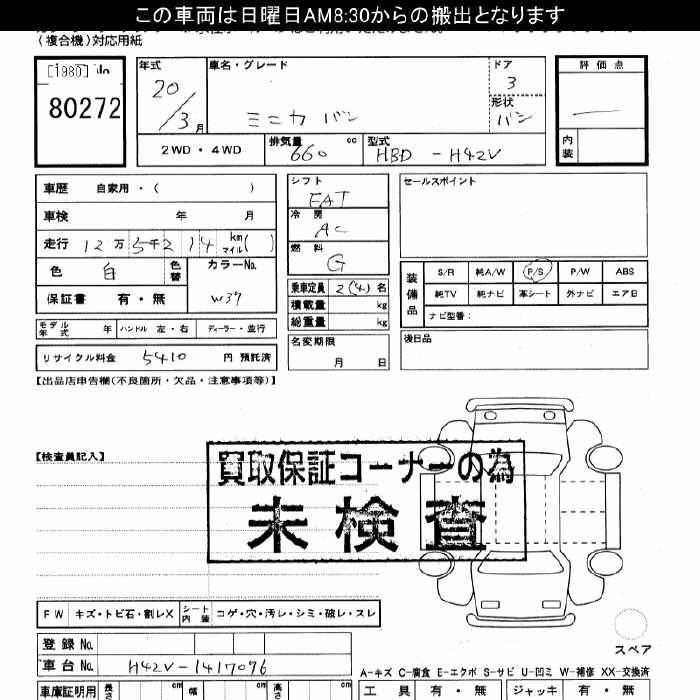 この車両は日曜日AM8:30からの搬出となります
(複合機)対応用紙
[1980]
80272
年式
20/3月
車名・グレード
ミニカ バン
ドア
3
形状
バン
評価点
内装
2WD・4WD
排気量
660 cc
型式
HBD-H42V
車歴 自家用・( )
車検 年 月
走行 12万5千214 km マイル( )
色 白 色替 カラーNo. W37
保証書 有・無
シフト
FAT
冷房
AC
燃料
G
乗車定員 2(4)名
積載量 kg
総重量 kg
名変期限
月 日
セールスポイント
装備品
S/R 純A/W P/S P/W ABS
純TV 純ナビ 革シート 外ナビ エアB
ナビ型番:
後日品
モデル年式 年 ハンドル 左・右 ディーラー・並行
リサイクル料金 5410 円 預託済
【出品店申告欄(不良箇所・欠品・注意事項等)】
【検査員記入】
買取保証コーナーの為
未検査
FW キズ・トビ石・割レX シート内装 コゲ・穴・汚レ・シミ・破レ・スレ
登録No.
車台No. H42V-1417096
スペア
A-キズ C-腐食 E-エクボ S-サビ U-凹ミ W-補修 XX-交換済
車庫証明用 長さ cm 幅 cm 高さ cm
工具 有・無 ジャッキ 有・無